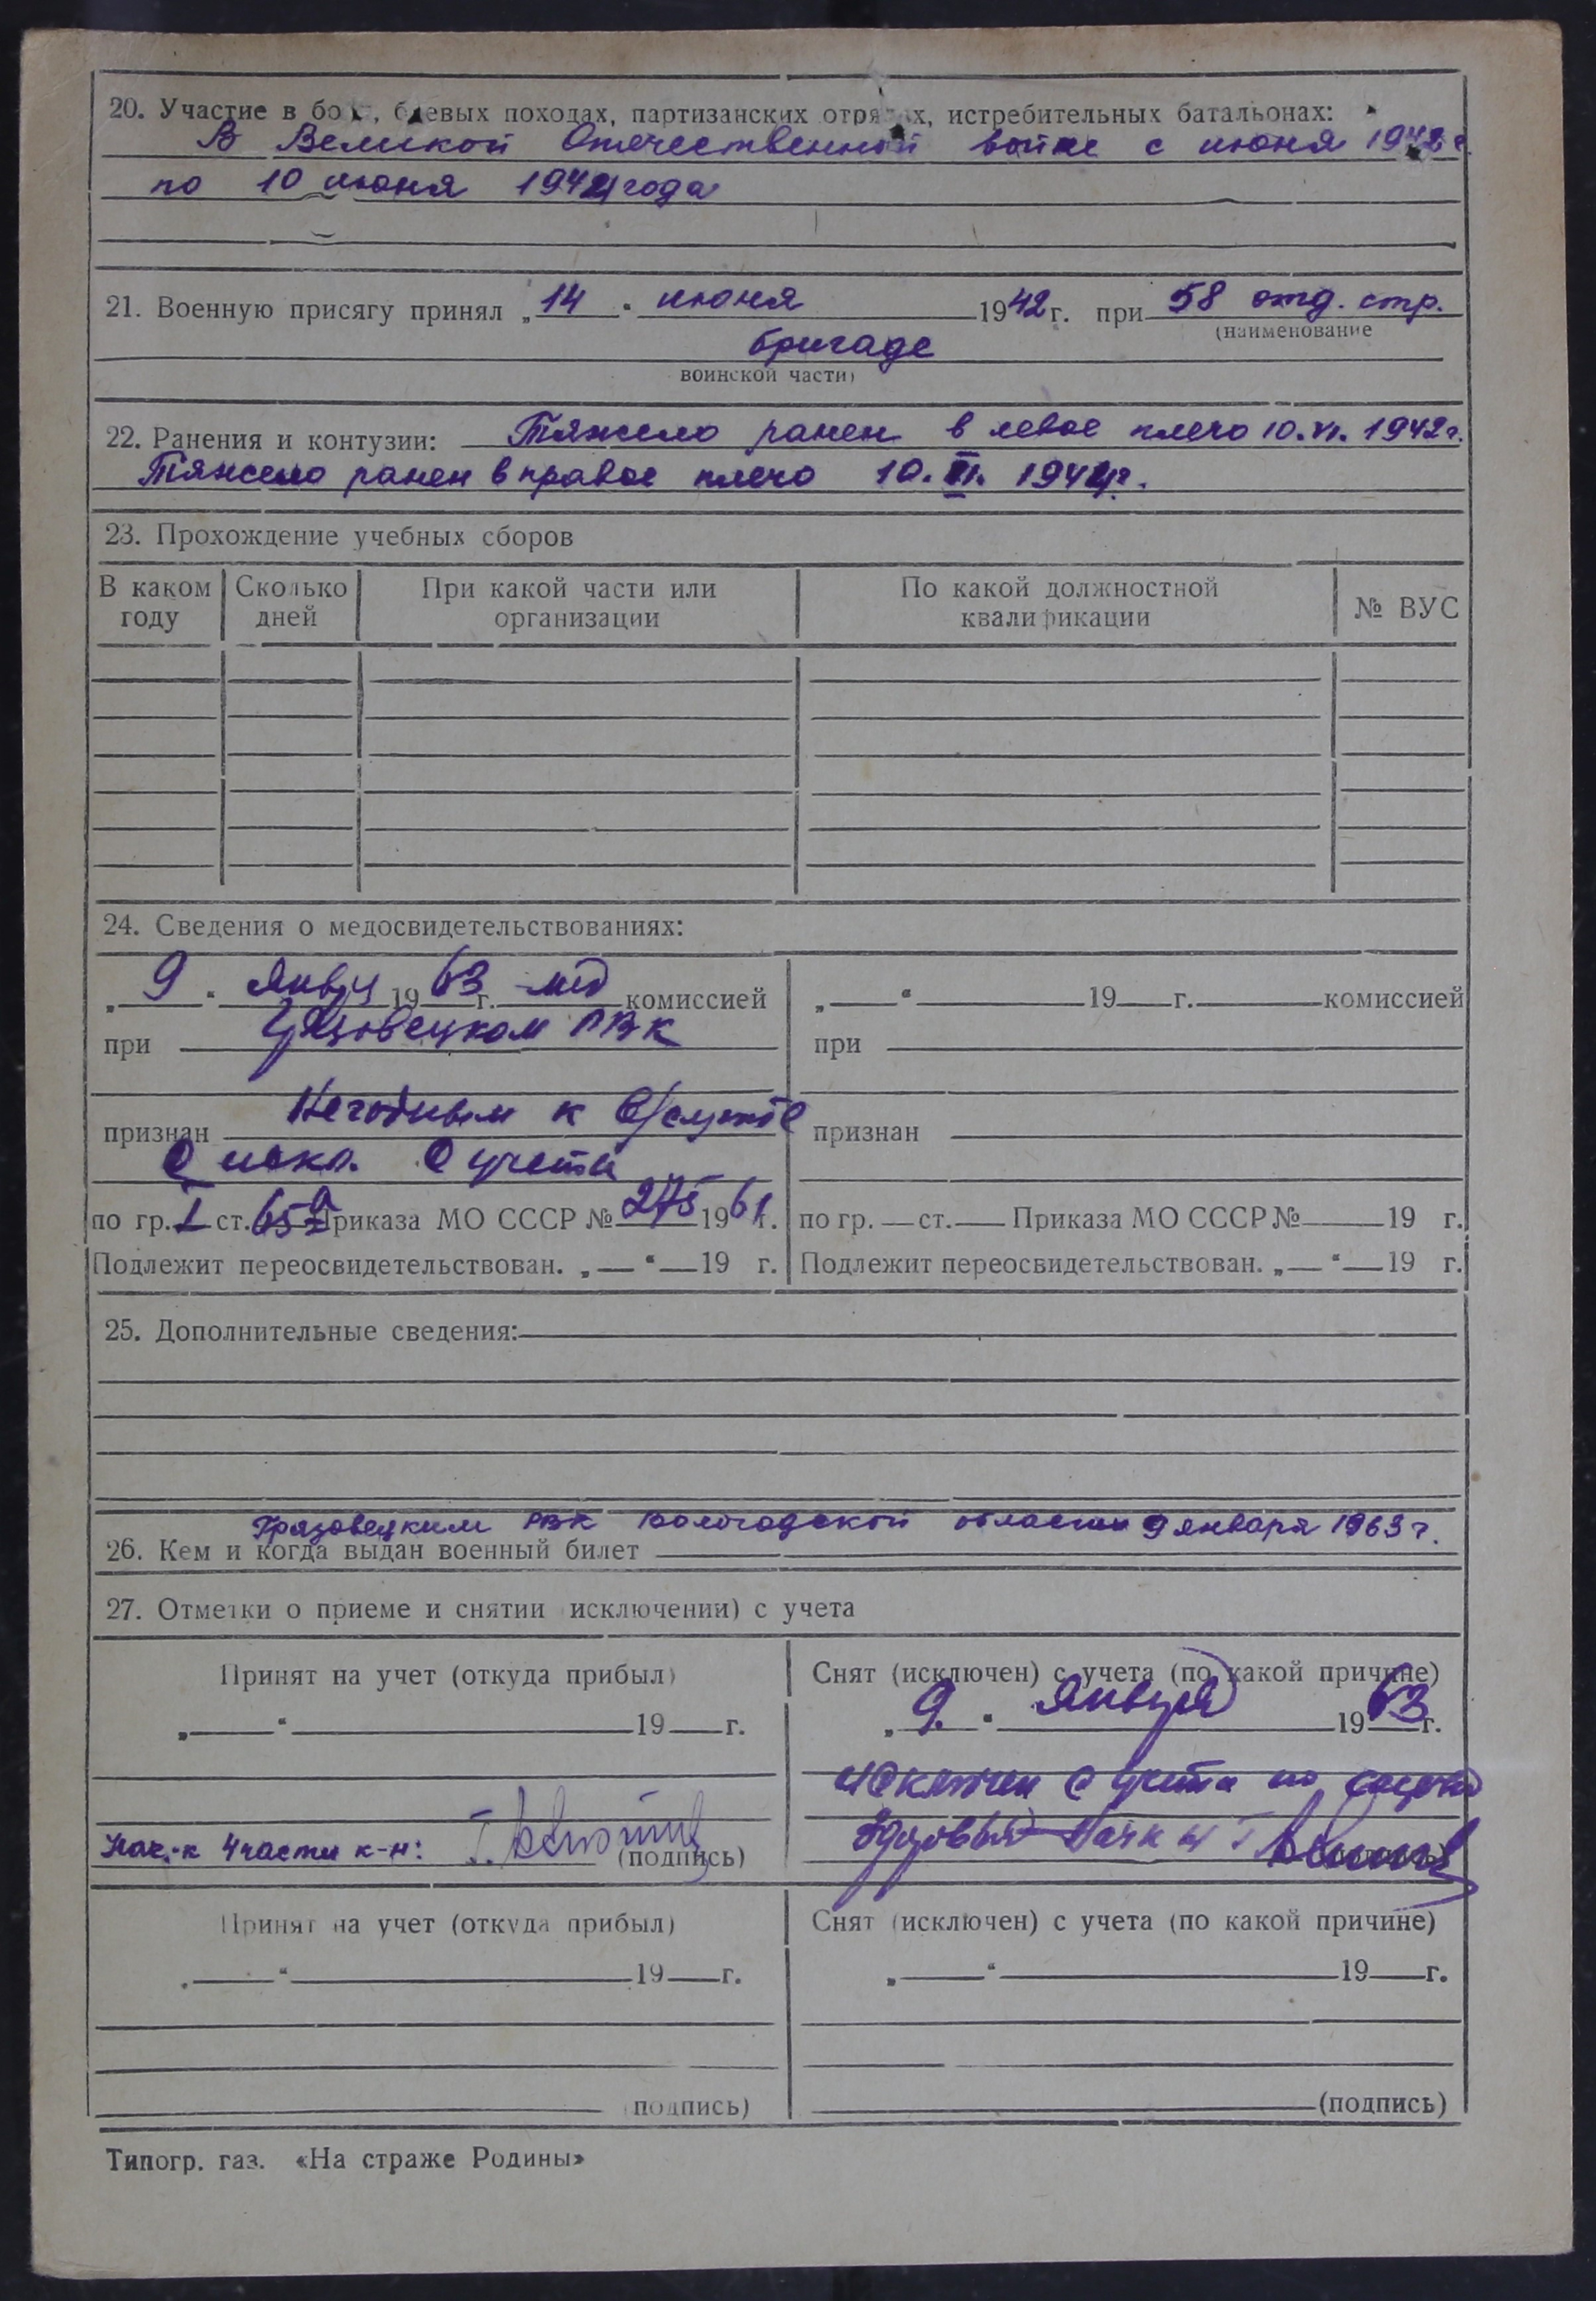 20. Участие в боях, боевых походах, партизанских отрядах, истребительных батальонах:
В Великой Отечественной войне с июня 1942 г.
по 10 июня 1944 года
21. Военную присягу принял „14“ июня 1942 г. при 58 отд. стр.
(наименование
бригаде
воинской части)
22. Ранения и контузии: Тяжело ранен в левое плечо 10.VI.1942г.
Тяжело ранен в правое плечо 10.VI.1944г.
23. Прохождение учебных сборов
В каком году Сколько дней При какой части или организации По какой должностной квалификации № ВУС
24. Сведения о медосвидетельствованиях:
„9“ январ 1963 г. мед комиссией
при Грязовецком РВК
признан Негодным к в/службе
с искл. с учета
по гр. I ст. 65а Приказа МО СССР № 275 1961г.
Подлежит переосвидетельствован. „ “ 19 г.
„ “ 19 г. комиссией
при
признан
по гр. ст. Приказа МО СССР № 19 г.
Подлежит переосвидетельствован. „ “ 19 г.
25. Дополнительные сведения:
Грязовецким РВК Вологодской области 9 января 1963 г.
26. Кем и когда выдан военный билет
27. Отметки о приеме и снятии исключении) с учета
Принят на учет (откуда прибыл)
„ “ 19 г.
Нач-к 4 части к-н:
(подпись)
Снят (исключен) с учета (по какой причине)
„9.“ января 1963 г.
исключен с учета по
здоровья Начк 4
Принят на учет (откуда прибыл)
„ “ 19 г.
(подпись)
Снят (исключен) с учета (по какой причине)
„ “ 19 г.
(подпись)
Типогр. газ. «На страже Родины»